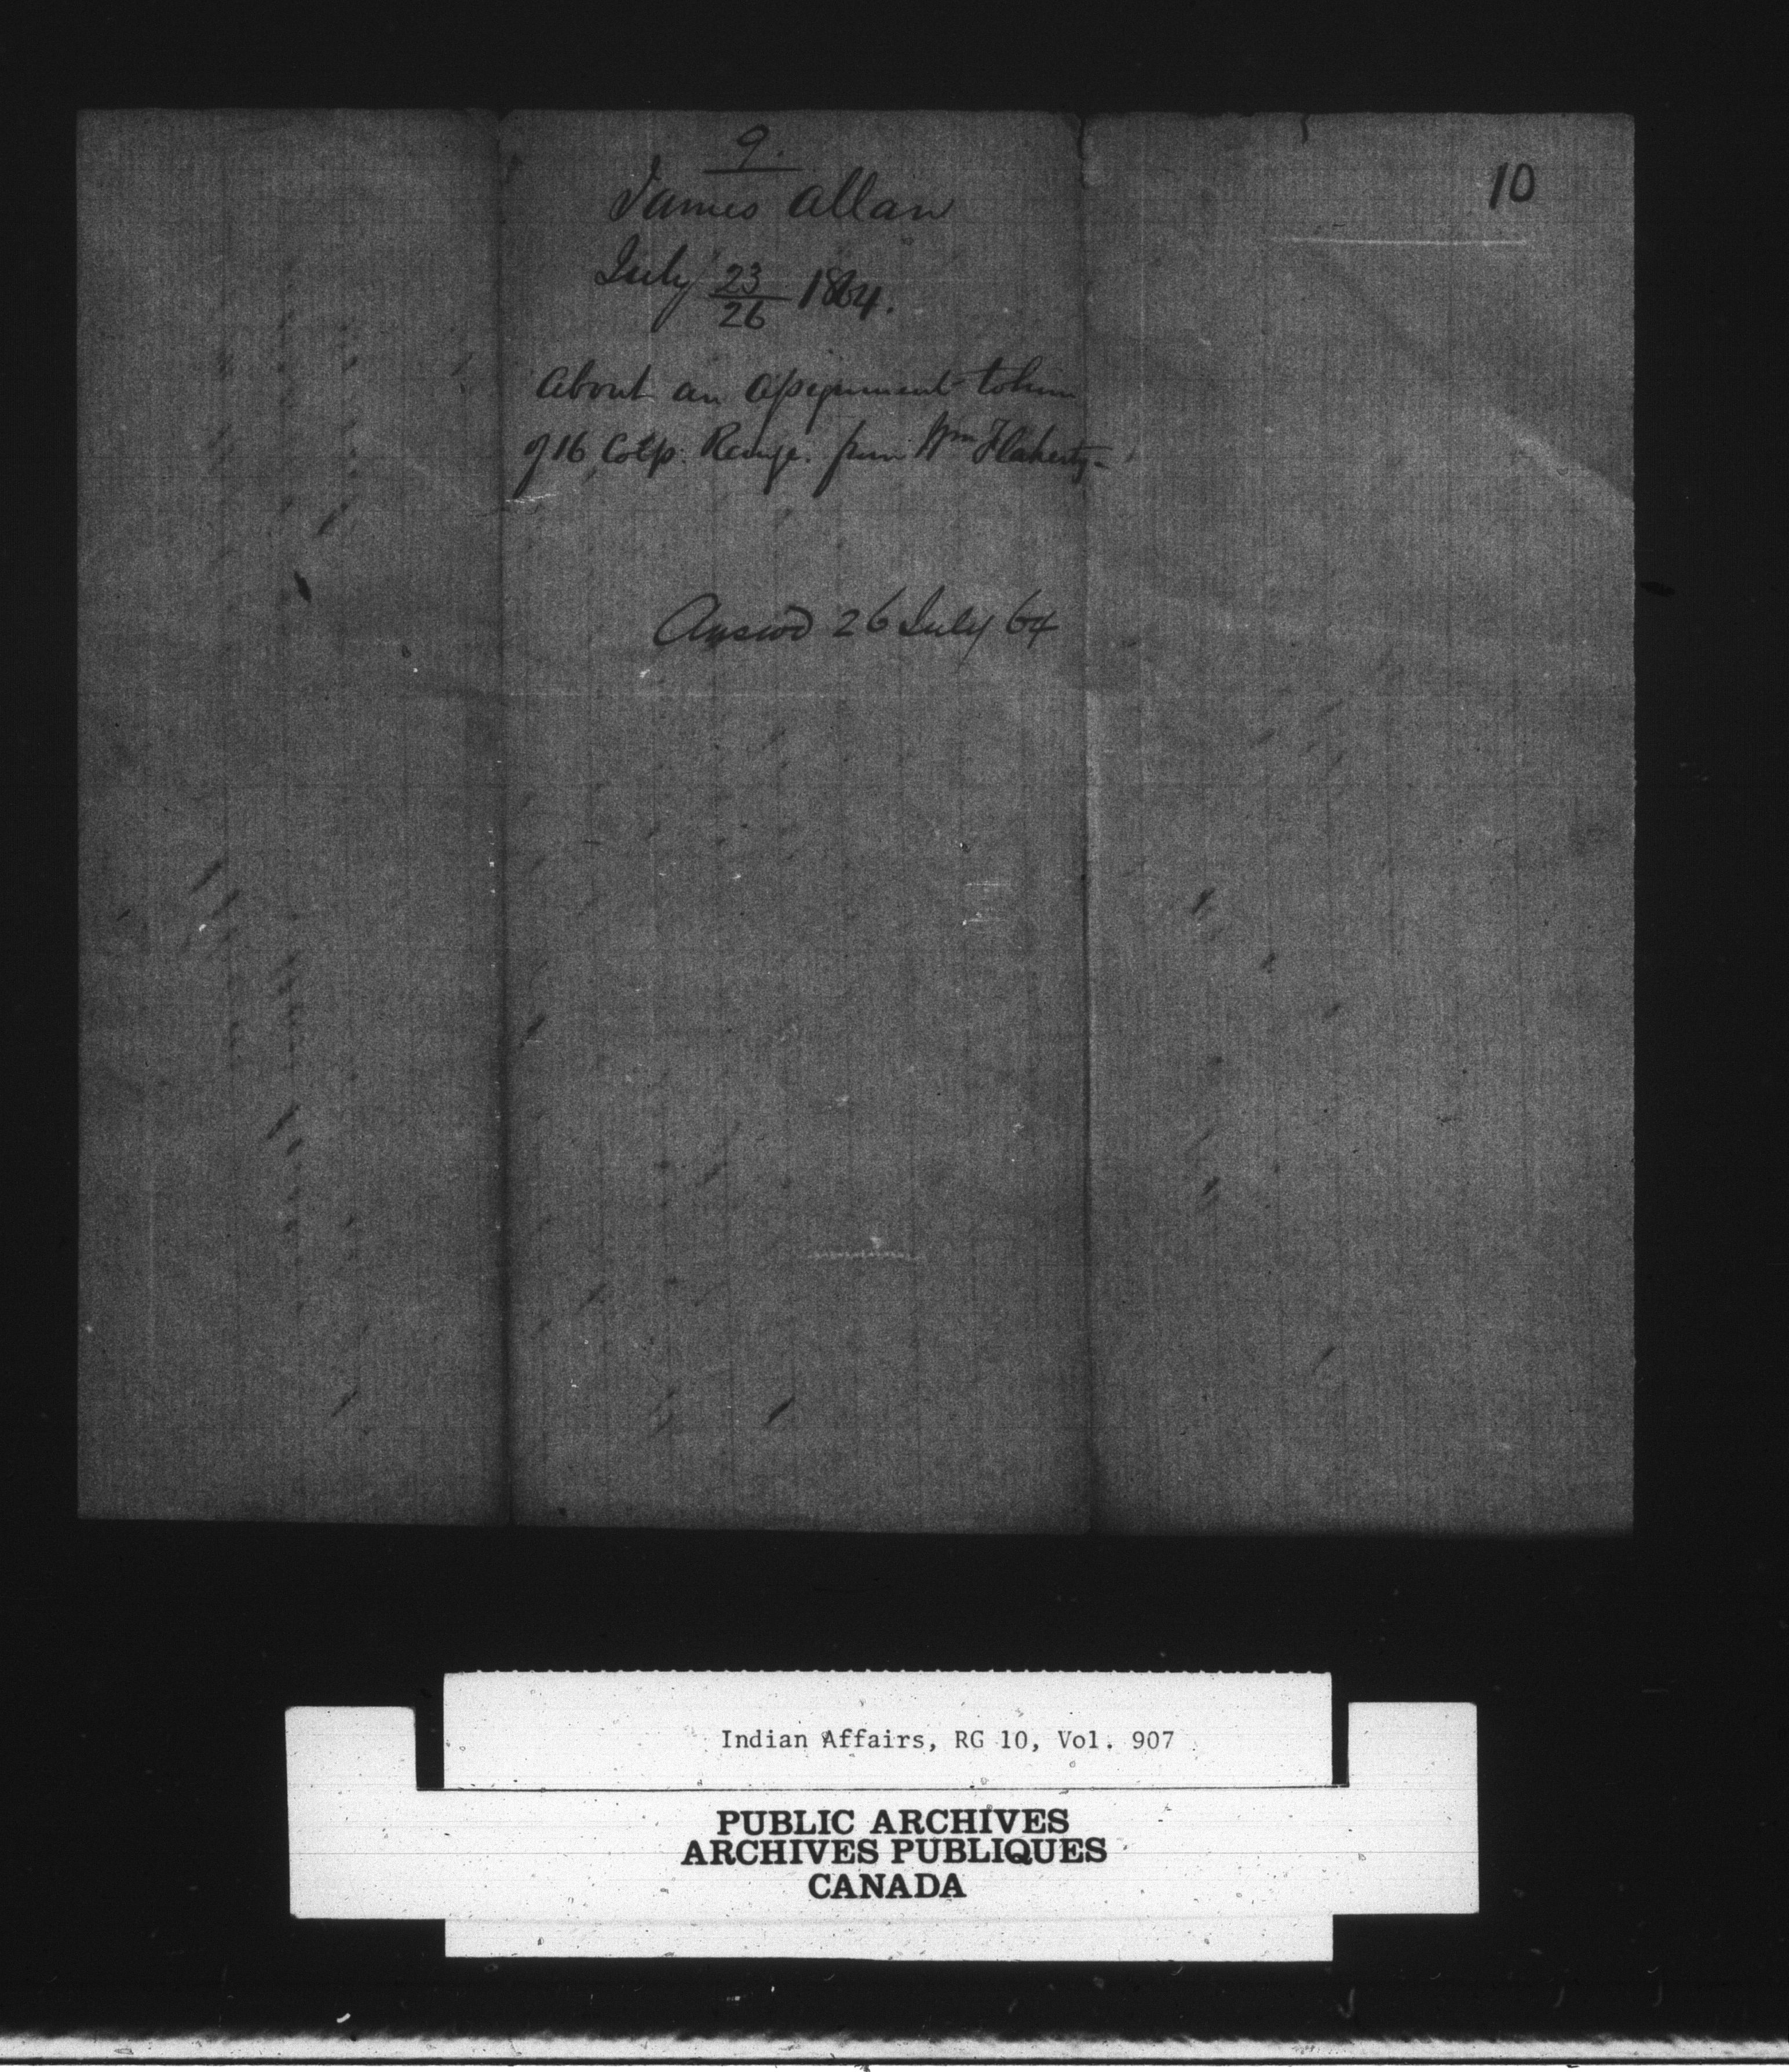 9.
10
James Allan
July 23/26 1864.
About an Assignment to him
of 16 Colp: Range. from Wm Flaherty-
Answd 26 July 64
Indian Affairs, RG 10, Vol. 907
PUBLIC ARCHIVES
ARCHIVES PUBLIQUES
CANADA